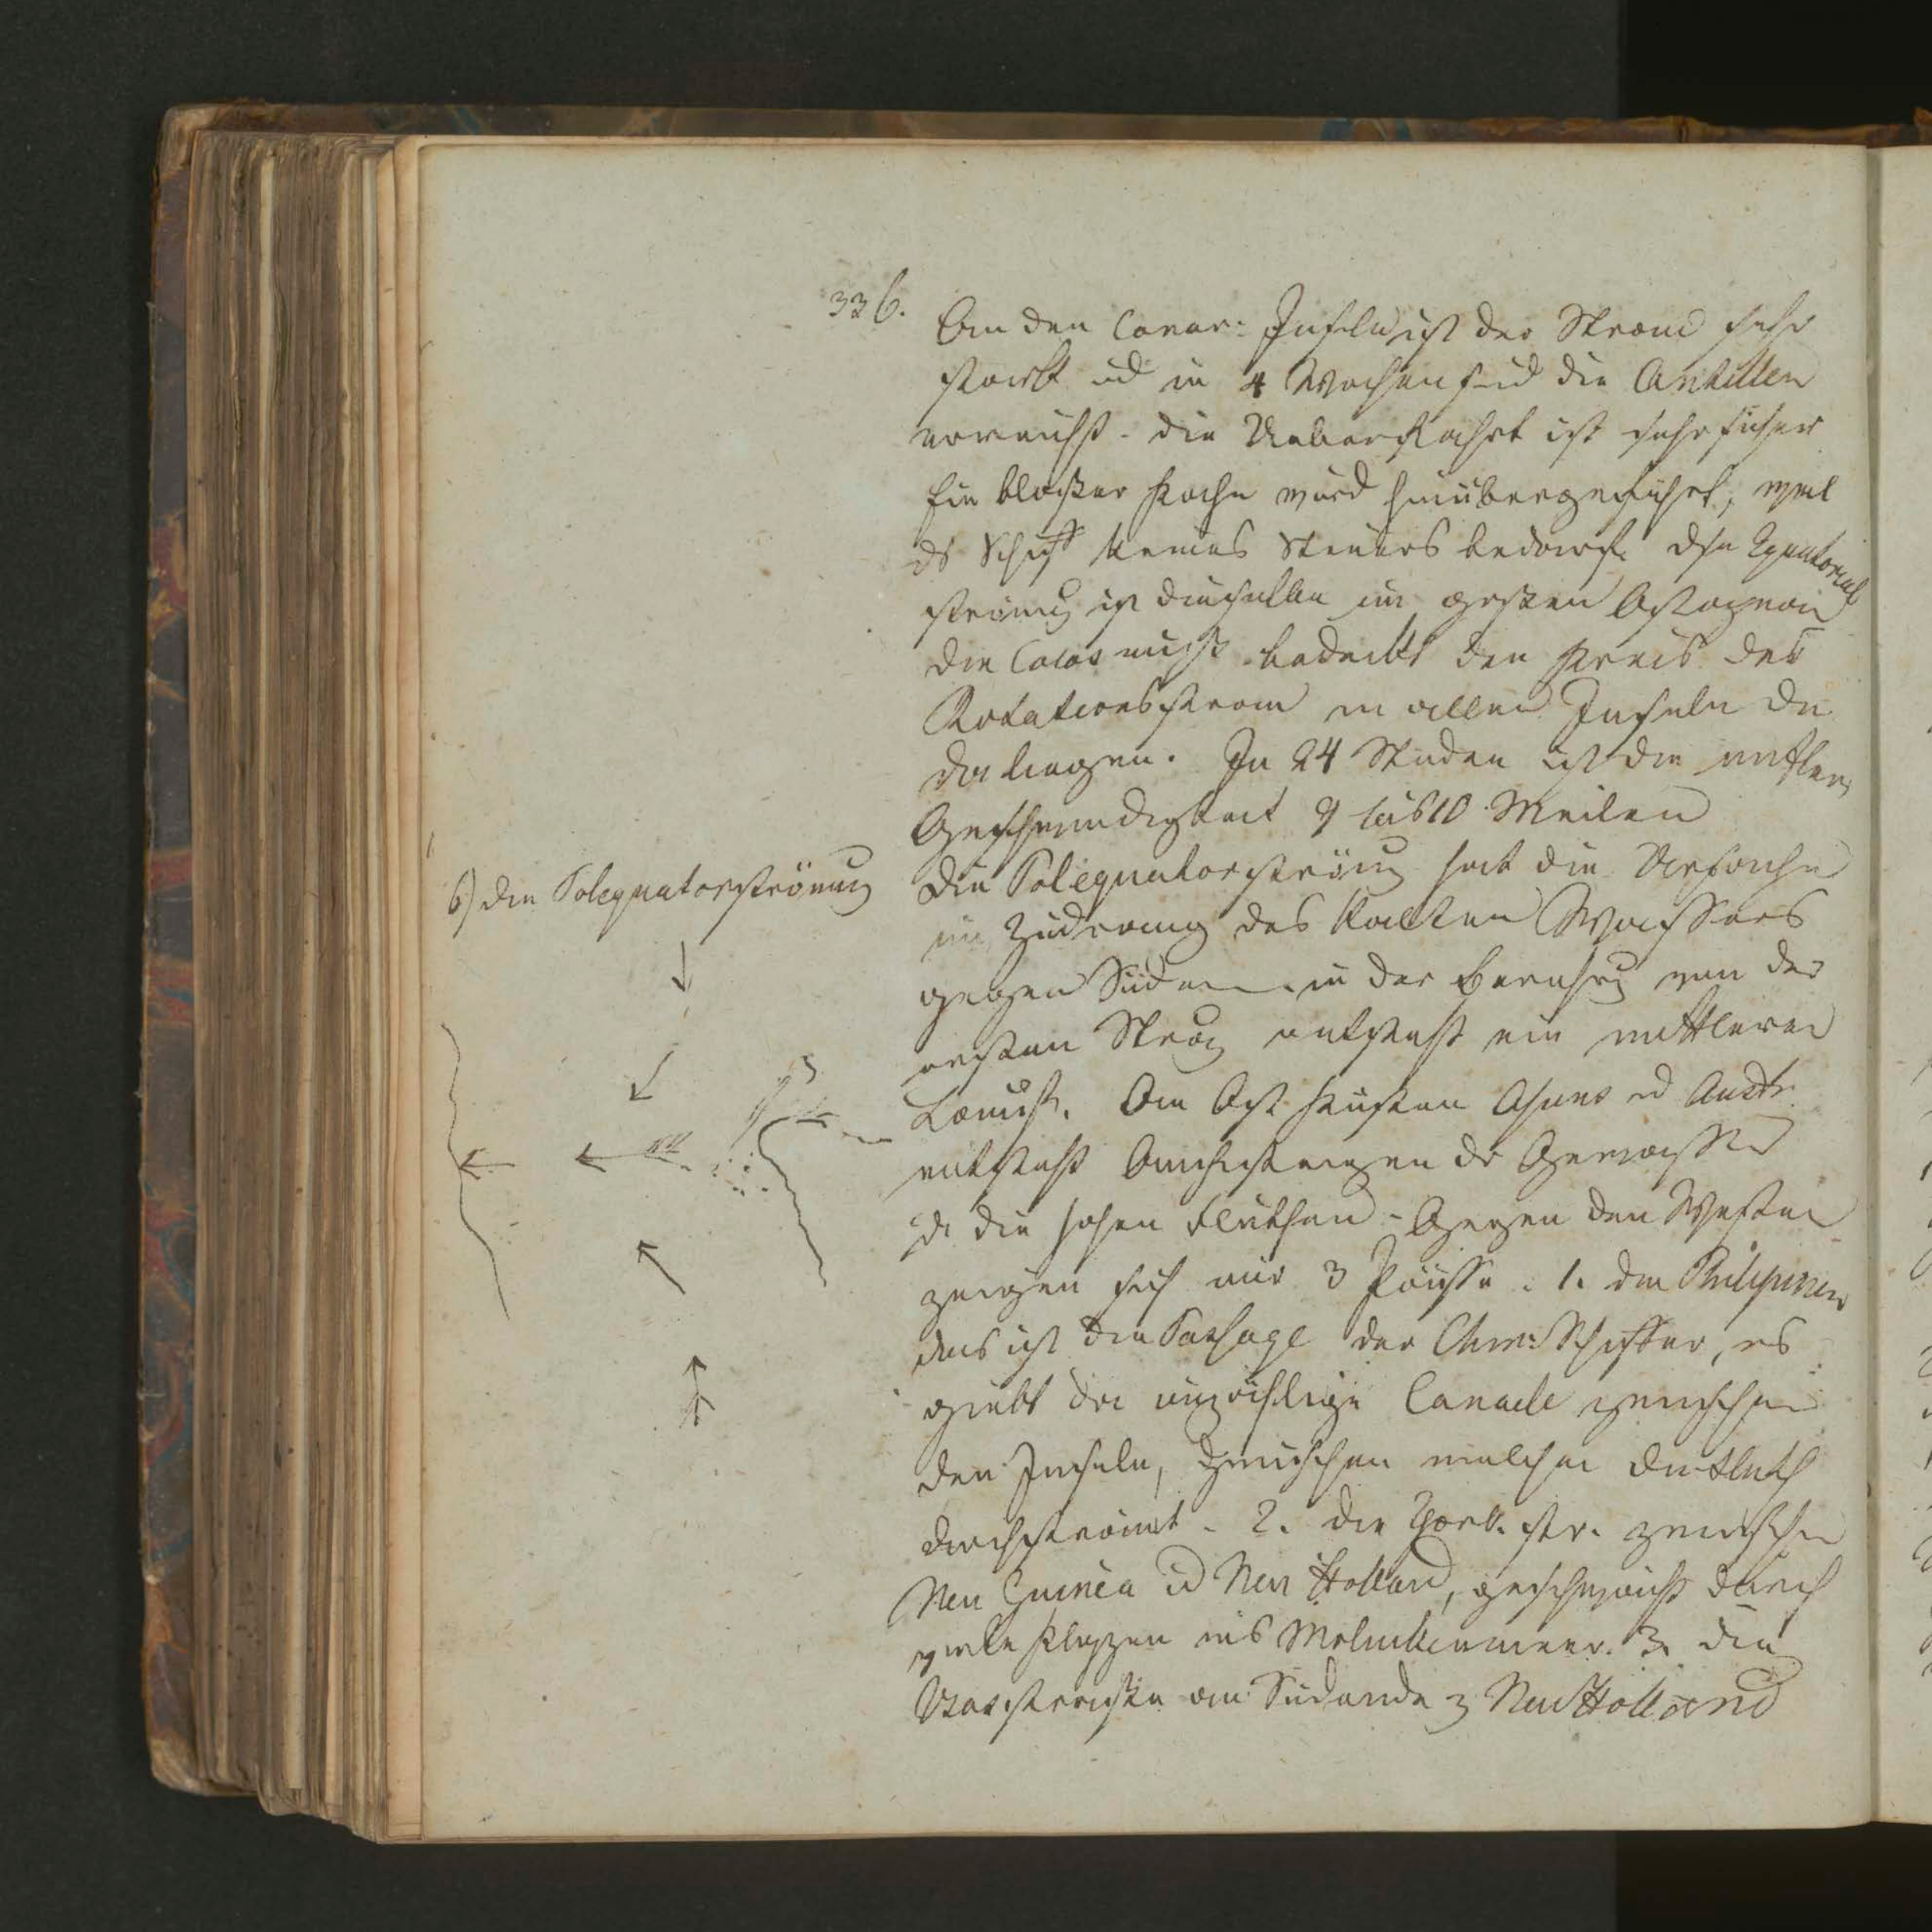 336.
An den Canar: Inseln ist der Strom sehr
stark ud in 4 Wochen sind die Antillen
erreicht. die Ueberfahrt ist sehr sicher
Ein bloßer Kahn wird hinübergeführt, weil
ds Schiff keines Steuers bedarf. Dse Equatorial
strömg ist dieselbe im großen Ostozean
die Cocos nuß bedeckt den Kreis des
Rotationsstrom in allen Inseln die
da liegen. In 24 Stunden ist die mittlere
Geschwindigkeit 9 bis 10 Meilen
6) die Polequatorströmung
die Polequatorströmg hat die Ursache
im Zudrang des kalten Wassers
gegen Süden. in der Berührg von der
ersten Strömg entsteht eine mittlere
Am Ost Küsten Asiens ud Austr.
entsteht Aufsteigen dr Gewässer
d. die hohen Fluthen - Gegen den Westen
zeigen sich nur 3 Pässe. 1. die Philippinen
das ist die Passage der Schiffer, es
giebt da unzählige Canaele zwischen
den Inseln, zwischen welchen die Fluth
durchströmt. 2. die York. str. zwischen
Neu Guinea ud Neu Holland, geschwächt durch
viele Klippen ins Molukkenmeer. 3. die
Basstraße am Südende z Neu Holland